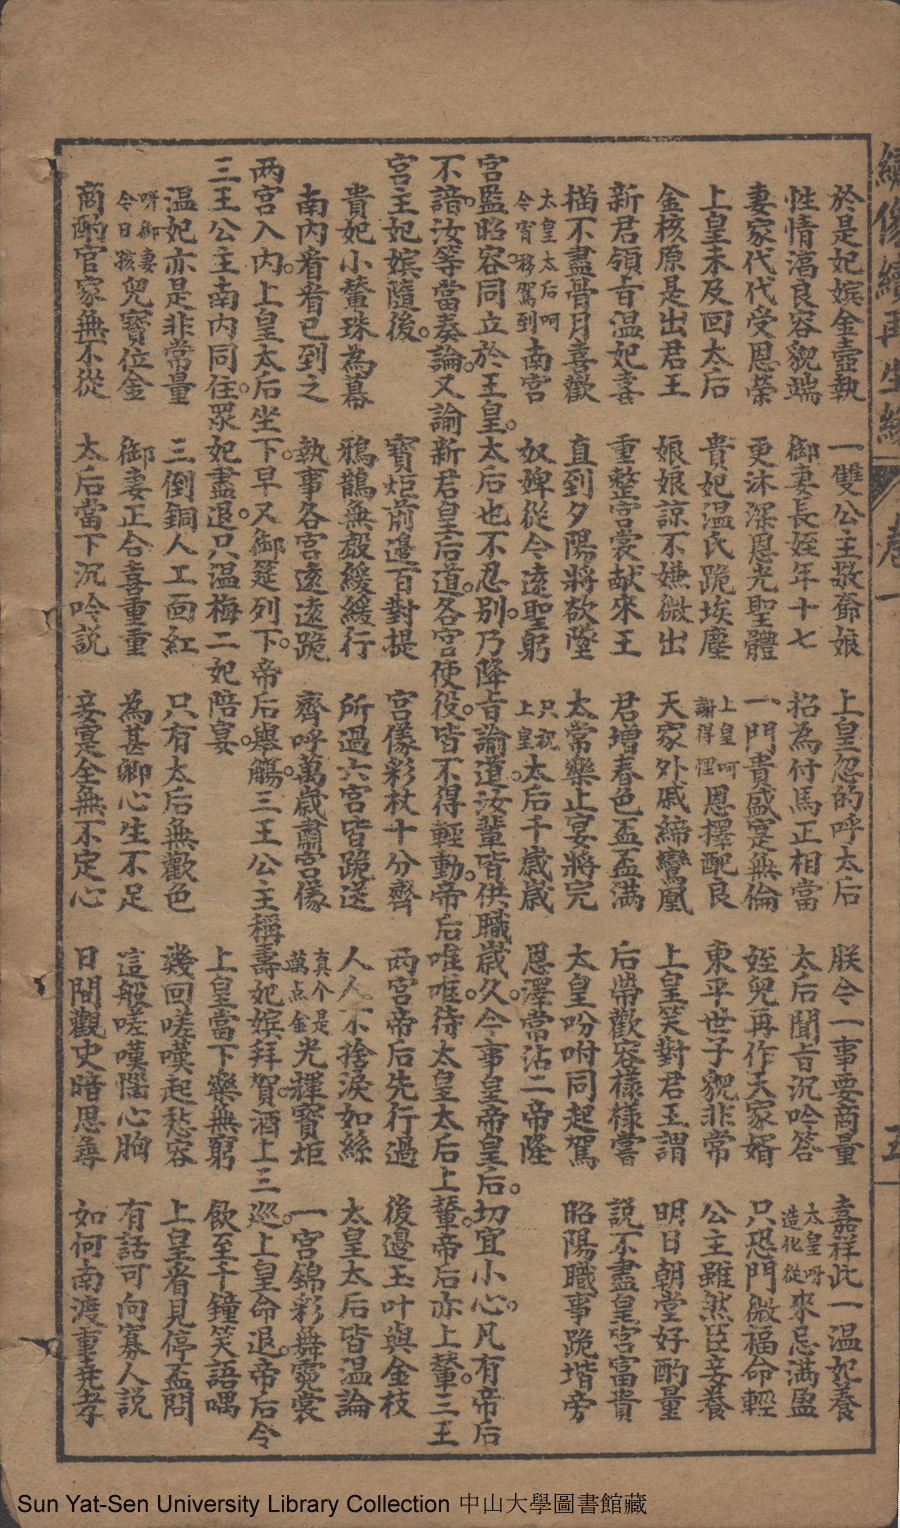 繡像續再生緣 卷一 五
於是妃嬪金壺執 一雙公主敬爺娘 上皇忽的呼太后 朕今一事要商量 嘉祥此一温妃養
性情温良容貌端 御妻長姪年十七 招為付馬正相當 太后聞旨沉吟答 太皇呀造化從來忌滿盈
妻家代代受恩荣 更沐深恩光聖體 一門貴盛寔無倫 姪兒再作天家婿 只恐門微福命輕
上皇未及回太后 貴妃温氏跪埃塵 上皇呵謝得恩擇配良 東平世子貌非常 公主雖然臣妾養
金核原是出君王 娘娘諒不嫌微出 天家外戚締鸞凰 上皇笑對君王謂 明日朝堂好酌量
新君領旨温妃喜 重整宫裳献來王 君增春色盃盃满 后帶歡容樣樣嘗 說不盡皇宫富貴
描不盡骨月喜歡 直到夕陽將欲墜 太常樂止宴將完 太皇吩咐同起駕 昭陽職事跪堦旁
太皇太后呵令宵移駕到南宫 奴婢從今遠聖躬 只祝上皇太后千歲歲 恩澤常沾二帝隆
宫監昭容同立於王皇。太后也不忍別。乃降旨諭道。汝輩皆供職歲久。今事皇帝皇后。切宜小心。凡有帝后
不諳。汝等當奏論。又諭新君皇后道。各宫使役。皆不得輕動。帝后唯唯。待太皇太后上輦。帝后亦上輦。三王
宫主妃嬪隨後。 寶炬前邊百對提 宫儀彩杖十分齊 两宫帝后先行過 後邊玉叶與金枝
貴妃小輦珠為幕 鴉鵲無聲緩緩行 所過六宫皆跪送 人人不捨淚如絲 太皇太后皆温諭
南内看看已到之 執事各宫遠遠跪 齊呼萬歲肅宫儀 真个是萬点金光輝寶炬 一宫錦彩舞霓裳
两宫入内。上皇太后坐下。早又御筵列下。帝后舉觴。三王公主稱壽。妃嬪拜賀。酒上三巡。上皇命退。帝后令
三王公主南内同住。眾妃盡退。只温梅二妃陪宴。 上皇當下樂無窮 飲至千鐘笑語喁
温妃亦是非常量 三倒銅人工面紅 只有太后無歡色 幾回嗟嘆起愁容 上皇看見停盃問
呀御妻令日孩兒寶位金 御妻正合喜重重 為甚卿心生不足 這般嗟嘆惱心胸 有話可向寡人説
商酌官家無不從 太后當下沉吟説 妾寔全無不定心 日間觀史暗思尋 如何南渡重堯孝
Sun Yat-Sen University Library Collection 中山大學圖書館藏